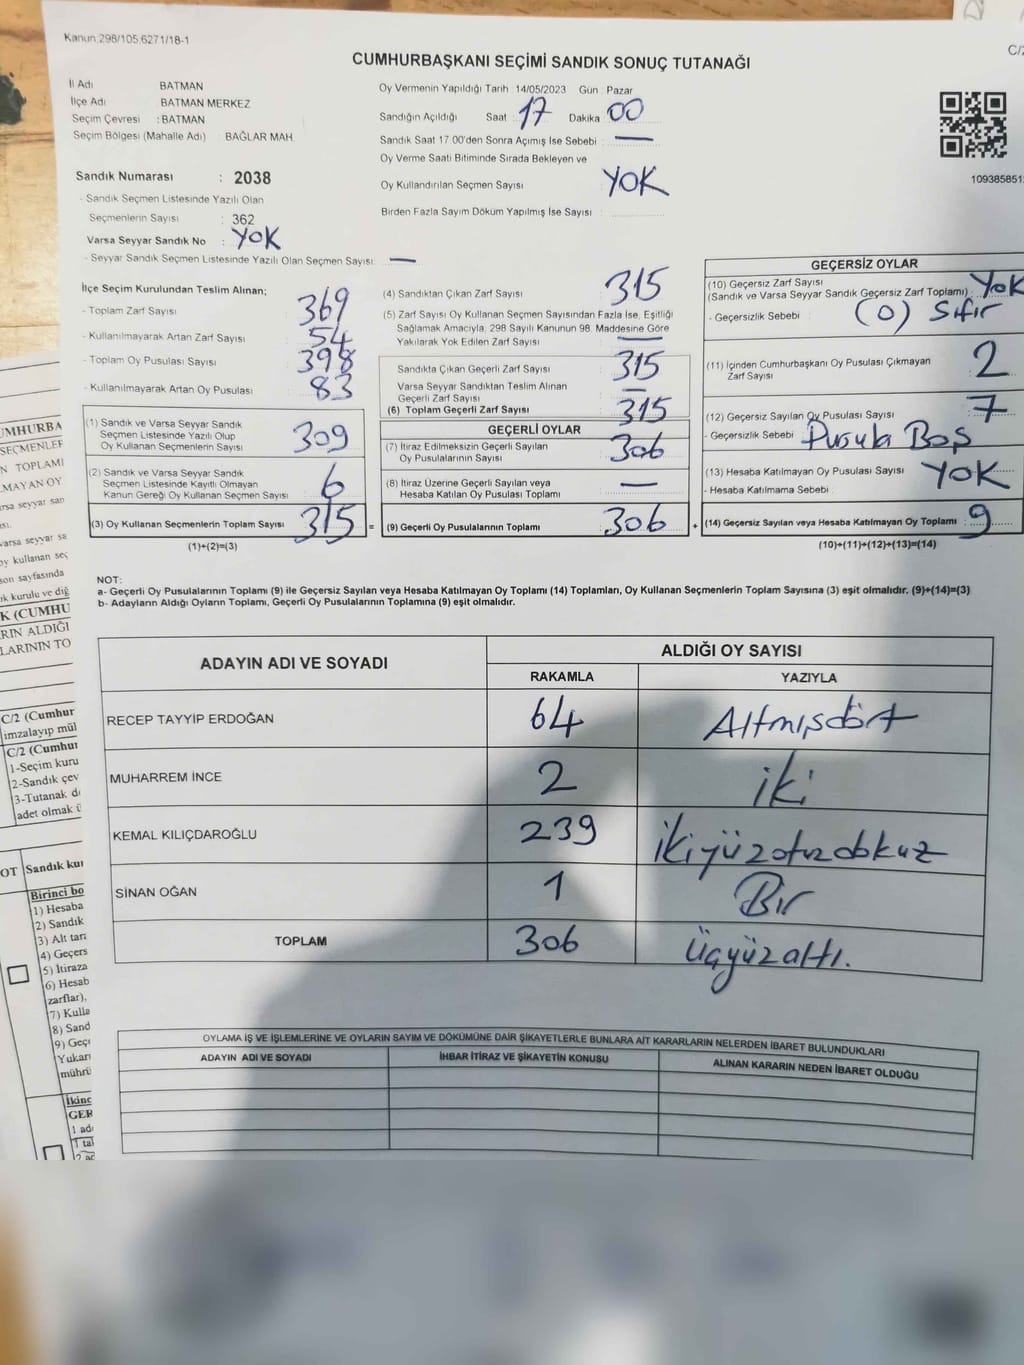 Kanun:298/105,6271/18-1
C/2
CUMHURBAŞKANI SEÇİMİ SANDIK SONUÇ TUTANAĞI
İl Adı BATMAN
İlçe Adı BATMAN MERKEZ
Seçim Çevresi : BATMAN
Seçim Bölgesi (Mahalle Adı) : BAĞLAR MAH.
Sandık Numarası : 2038
- Sandık Seçmen Listesinde Yazılı Olan
Seçmenlerin Sayısı : 362
Varsa Seyyar Sandık No : YOK
- Seyyar Sandık Seçmen Listesinde Yazılı Olan Seçmen Sayısı: —
Oy Vermenin Yapıldığı Tarih 14/05/2023 Gün : Pazar
Sandığın Açıldığı Saat : 17 Dakika : 00
Sandık Saat 17 00'den Sonra Açımış İse Sebebi : —
Oy Verme Saati Bitiminde Sırada Bekleyen ve
Oy Kullandırılan Seçmen Sayısı : YOK
Birden Fazla Sayım Döküm Yapılmış İse Sayısı :
109385851
İlçe Seçim Kurulundan Teslim Alınan;
- Toplam Zarf Sayısı : 369
- Kullanılmayarak Artan Zarf Sayısı : 54
- Toplam Oy Pusulası Sayısı : 398
- Kullanılmayarak Artan Oy Pusulası : 83
(1) Sandık ve Varsa Seyyar Sandık
Seçmen Listesinde Yazılı Olup
Oy Kullanan Seçmenlerin Sayısı : 309
(2) Sandık ve Varsa Seyyar Sandık
Seçmen Listesinde Kayıtlı Olmayan
Kanun Gereği Oy Kullanan Seçmen Sayısı : 6
(3) Oy Kullanan Seçmenlerin Toplam Sayısı : 315 =
(1)+(2)=(3)
(4) Sandıktan Çıkan Zarf Sayısı : 315
(5) Zarf Sayısı Oy Kullanan Seçmen Sayısından Fazla İse, Eşitliği
Sağlamak Amacıyla, 298 Sayılı Kanunun 98. Maddesine Göre
Yakılarak Yok Edilen Zarf Sayısı : —
Sandıkta Çıkan Geçerli Zarf Sayısı : 315
Varsa Seyyar Sandıktan Teslim Alınan
Geçerli Zarf Sayısı : —
(6) Toplam Geçerli Zarf Sayısı : 315
GEÇERLİ OYLAR
(7) İtiraz Edilmeksizin Geçerli Sayılan
Oy Pusulalarının Sayısı : 306
(8) İtiraz Üzerine Geçerli Sayılan veya
Hesaba Katılan Oy Pusulası Toplamı : —
(9) Geçerli Oy Pusulalarının Toplamı : 306 +
GEÇERSİZ OYLAR
(10) Geçersiz Zarf Sayısı
(Sandık ve Varsa Seyyar Sandık Geçersiz Zarf Toplamı) : YOK
- Geçersizlik Sebebi : (0) Sıfır
(11) İçinden Cumhurbaşkanı Oy Pusulası Çıkmayan
Zarf Sayısı : 2
(12) Geçersiz Sayılan Oy Pusulası Sayısı : 7
- Geçersizlik Sebebi : Pusula Boş
(13) Hesaba Katılmayan Oy Pusulası Sayısı : YOK
- Hesaba Katılmama Sebebi :
(14) Geçersiz Sayılan veya Hesaba Katılmayan Oy Toplamı : 9
(10)+(11)+(12)+(13)=(14)
NOT:
a- Geçerli Oy Pusulalarının Toplamı (9) ile Geçersiz Sayılan veya Hesaba Katılmayan Oy Toplamı (14) Toplamları, Oy Kullanan Seçmenlerin Toplam Sayısına (3) eşit olmalıdır. (9)+(14)=(3)
b- Adayların Aldığı Oyların Toplamı, Geçerli Oy Pusulalarının Toplamına (9) eşit olmalıdır.
ADAYIN ADI VE SOYADI
ALDIĞI OY SAYISI
RAKAMLA YAZIYLA
RECEP TAYYİP ERDOĞAN 64 Altmışdört
MUHARREM İNCE 2 iki
KEMAL KILIÇDAROĞLU 239 ikiyüzotuzdokuz
SİNAN OĞAN 1 Bir
TOPLAM 306 Üçyüzaltı.
OYLAMA İŞ VE İŞLEMLERİNE VE OYLARIN SAYIM VE DÖKÜMÜNE DAİR ŞİKAYETLERLE BUNLARA AİT KARARLARIN NELERDEN İBARET BULUNDUKLARI
ADAYIN ADI VE SOYADI İHBAR İTİRAZ VE ŞİKAYETİN KONUSU ALINAN KARARIN NEDEN İBARET OLDUĞU
UMHURBA
SEÇMENLER
N TOPLAMI
LMAYAN OY
varsa seyyar sa
oy kullanan seç
son sayfasında
ık kurulu ve diğ
K (CUMHU
RIN ALDIĞI
LARININ TO
C/2 (Cumhur
imzalayıp mül
C/2 (Cumhur
1-Seçim kuru
2-Sandık çev
3-Tutanak d
adet olmak ü
OT Sandık ku
Birinci bo
1) Hesaba
2) Sandık
3) Alt tarı
4) Geçers
5) İtiraza
6) Hesab
zarflar),
7) Kulla
8) Sand
9) Geçı
Yukarı
mührü
İkinc
GER
1 ad
1 tal